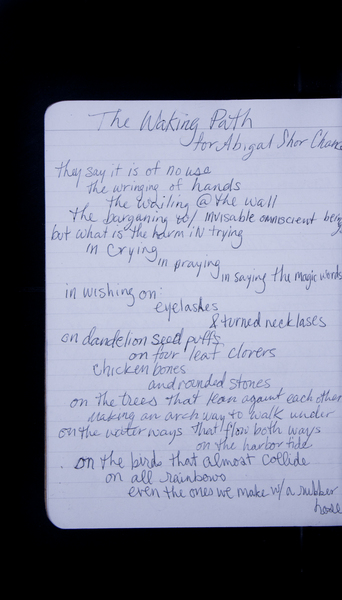 The Waking Path
for Abigal Shor Chance
they say it is of no use
the wringing of hands
the wailing @ the wall
the barganing w/ invisable omniscient beings
but what is the harm in trying
in crying
in praying
in saying the magic words
in wishing on:
eyelashes
& turned necklases
on dandelion seed puffs
on four leaf clovers
chicken bones
and rounded stones
on the trees that lean againt each other
making an arch way to walk under
on the water ways that flow both ways
on the harbor tide
on the birds that almost collide
on all rainbows
even the ones we make w/ a rubber
hose